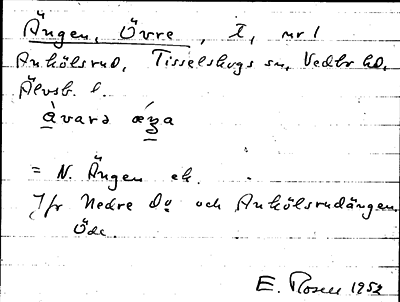 Ängen, Övre, t, nr 1
Ankölsrud, Tisselskogs sn, Vedbo hd,
Älvsb. l.
àvarə æŋa
= N. Ängen ek.
Jfr Nedre Do och Ankölsrudängen.
Öde.
E. Rosell 1952